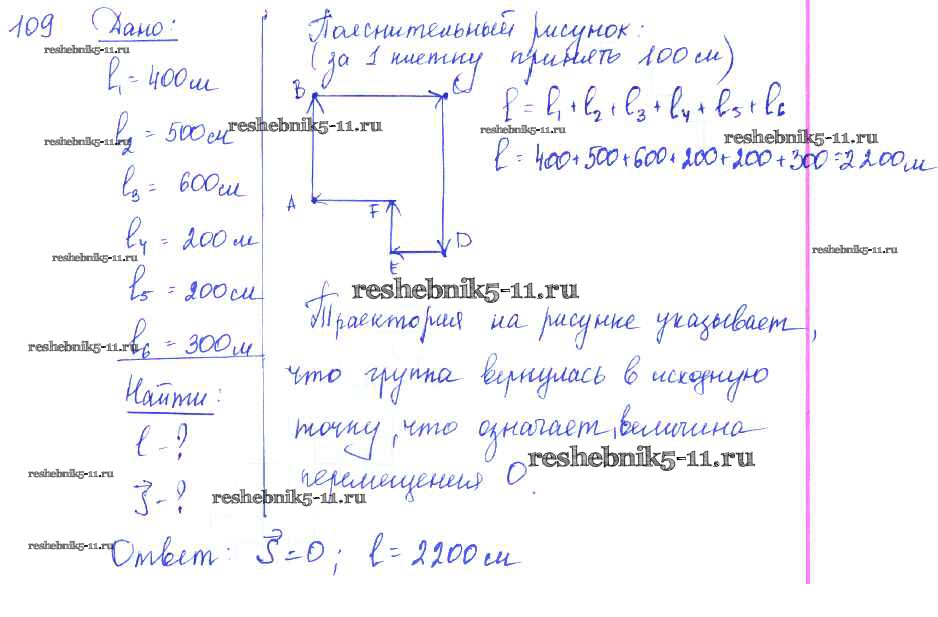 109 Дано:
l₁ = 400 м
l₂ = 500 м
l₃ = 600 м
l₄ = 200 м
l₅ = 200 м
l₆ = 300 м
Найти:
l - ?
S⃗ - ?
Пояснительный рисунок:
(за 1 клетку принять 100 м)
B
C
A
F
D
E
l = l₁ + l₂ + l₃ + l₄ + l₅ + l₆
l = 400+500+600+200+200+300=2200 м
Траектория на рисунке указывает,
что группа вернулась в исходную
точку, что означает, величина
перемещения 0.
Ответ: S⃗ = 0; l = 2200 м
reshebnik5-11.ru
reshebnik5-11.ru
reshebnik5-11.ru
reshebnik5-11.ru
reshebnik5-11.ru
reshebnik5-11.ru
reshebnik5-11.ru
reshebnik5-11.ru
reshebnik5-11.ru
reshebnik5-11.ru
reshebnik5-11.ru
reshebnik5-11.ru
reshebnik5-11.ru